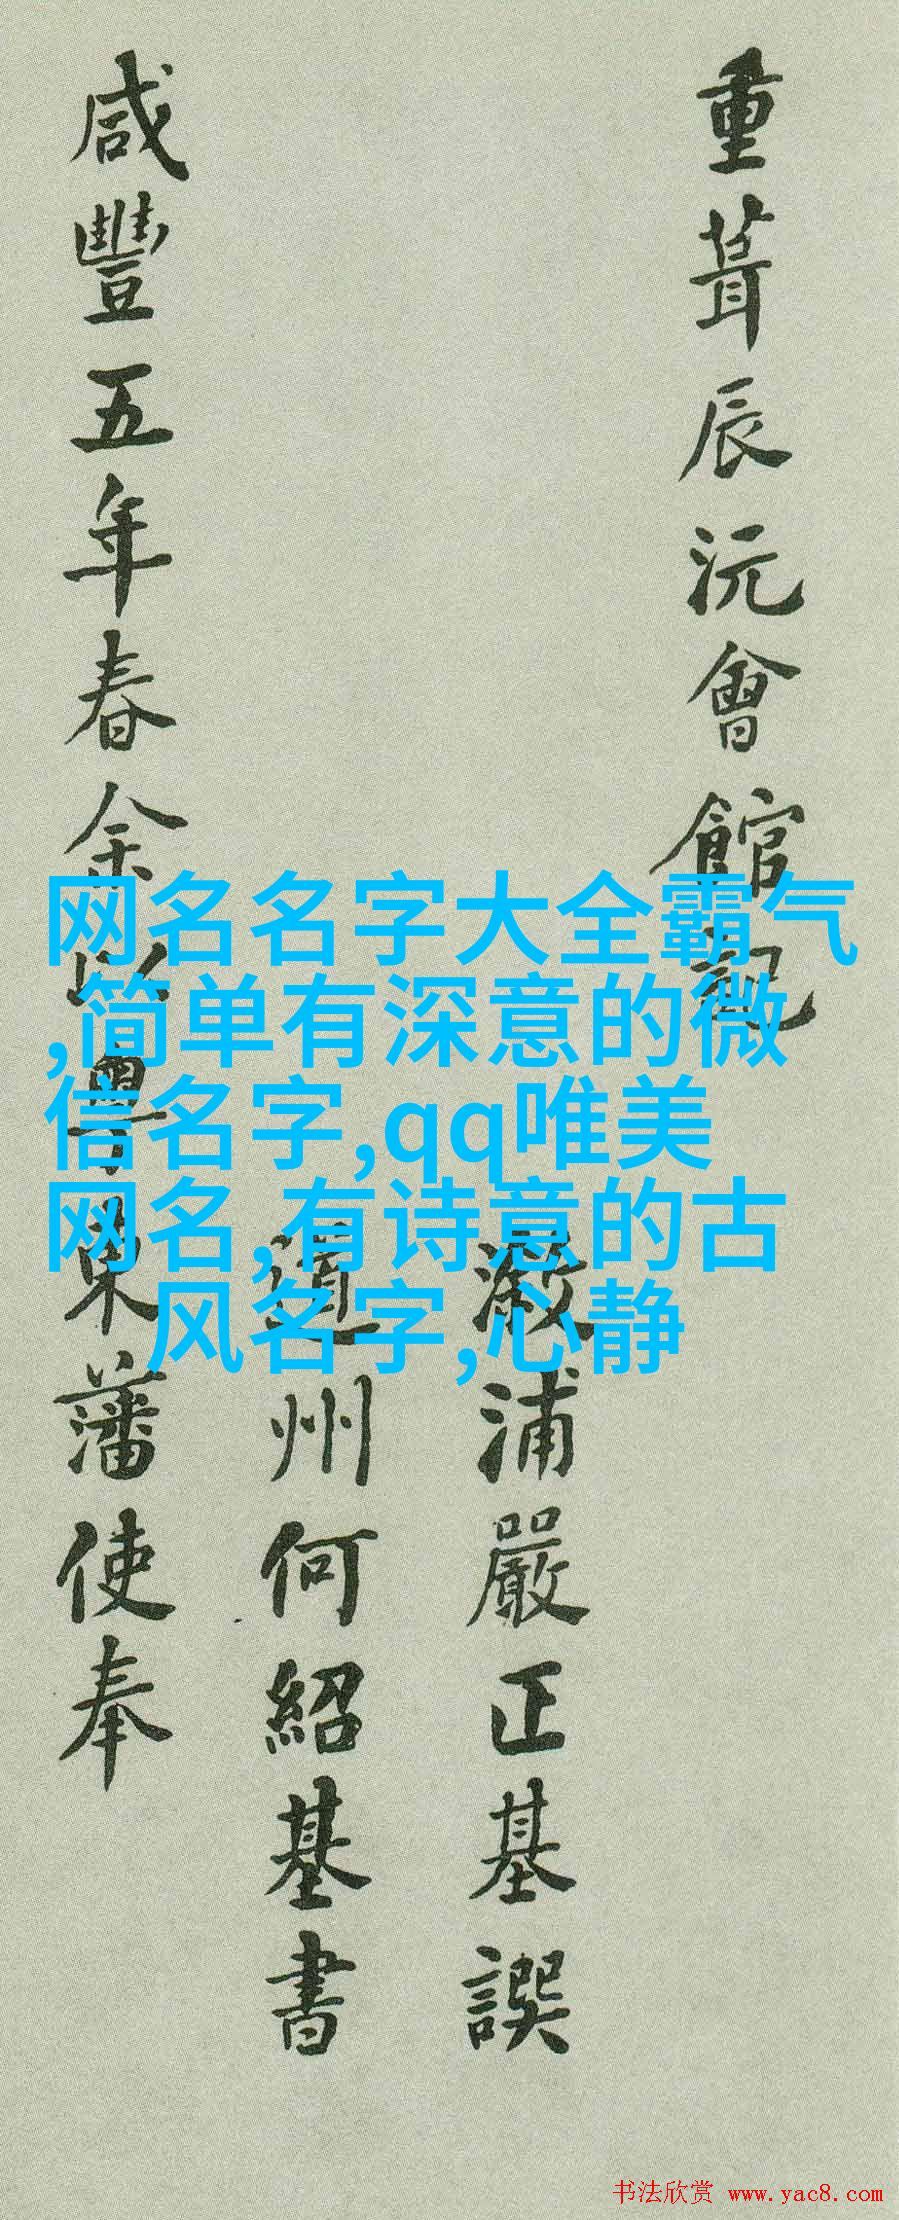 重葺辰沅會館記
漵浦嚴正基譔
道州何紹基書
咸豐五年春余以粤東藩使奉
网名名字大全霸气
,简单有深意的微
信名字,qq唯美
网名,有诗意的古
风名字,心静
书法欣赏 www.yac8.com